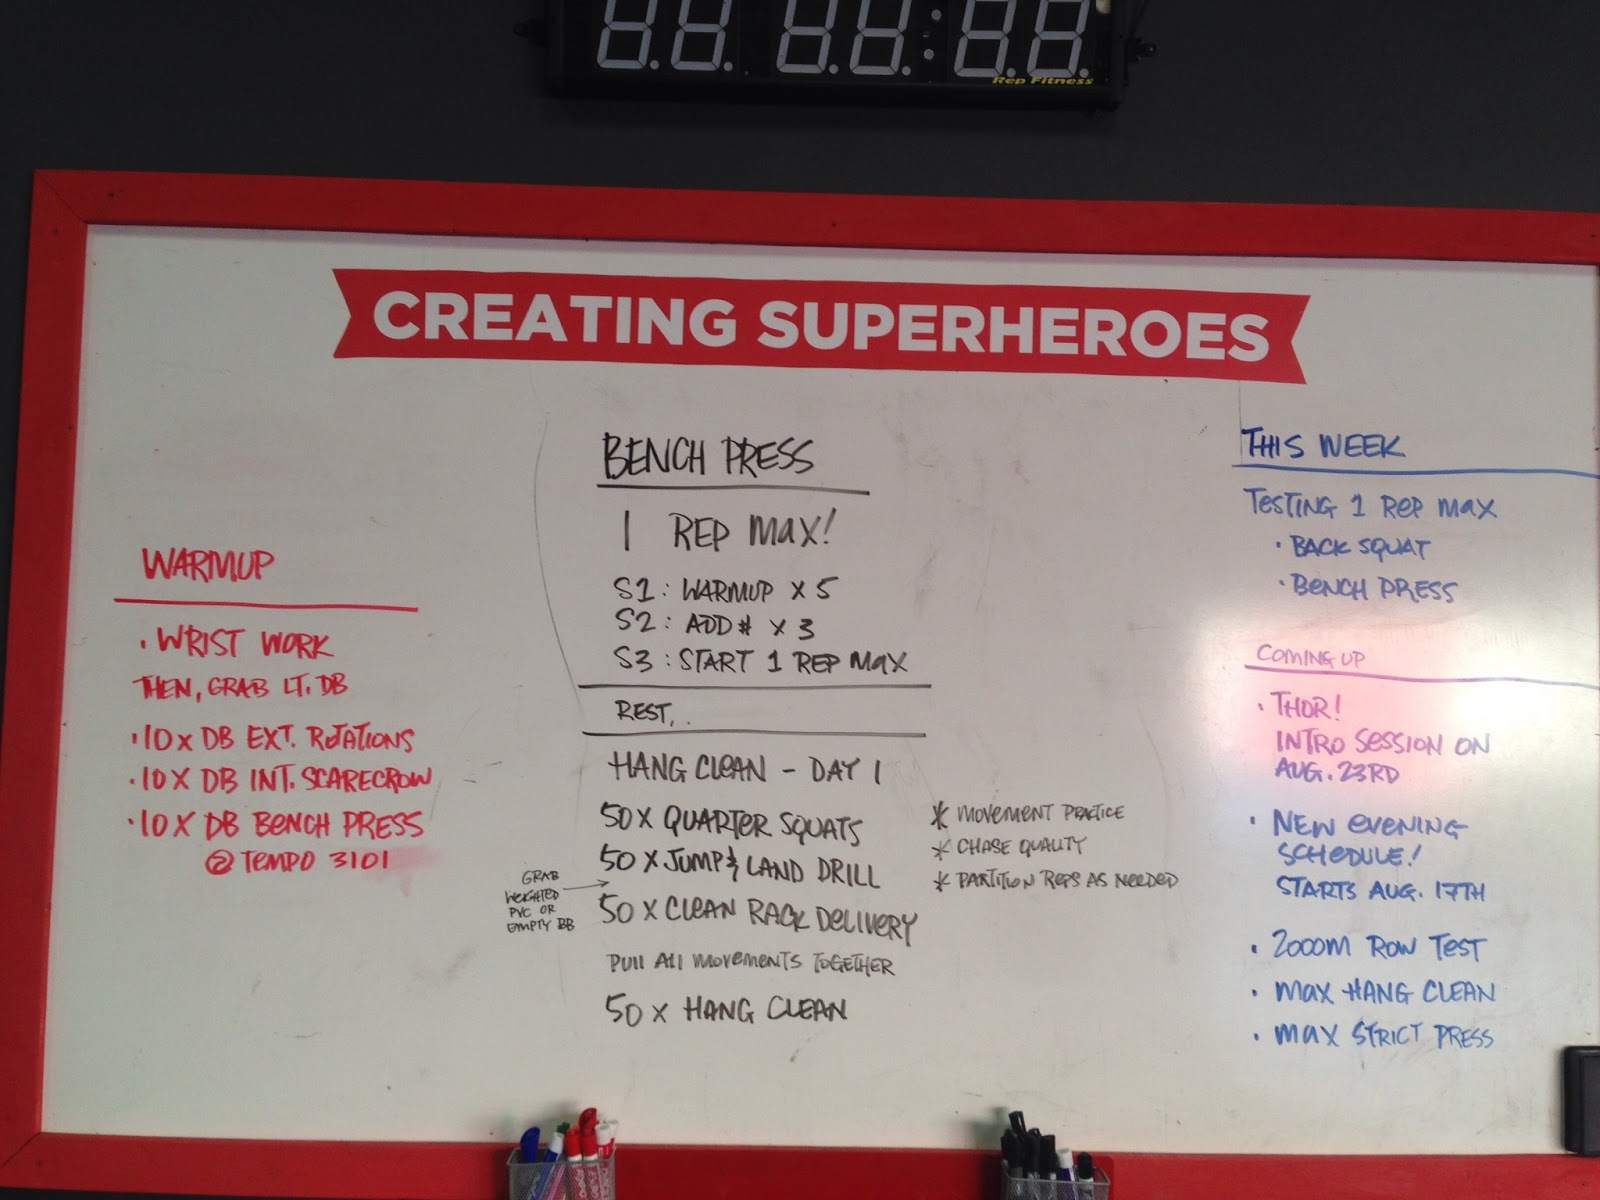 Rep Fitness
CREATING SUPERHEROES
WARMUP
· WRIST WORK
THEN, GRAB LT. DB
· 10 x DB EXT. ROTATIONS
· 10 X DB INT. SCARECROW
· 10 X DB BENCH PRESS
@ TEMPO 3101
BENCH PRESS
1 REP MAX!
S1: WARMUP X 5
S2: ADD # X 3
S3: START 1 REP MAX
REST, .
HANG CLEAN - DAY 1
50 X QUARTER SQUATS
50 X JUMP & LAND DRILL
50 X CLEAN RACK DELIVERY
PULL ALL MOVEMENTS TOGETHER
50 X HANG CLEAN
GRAB
WEIGHTED
PVC OR
EMPTY BB
* MOVEMENT PRACTICE
* CHASE QUALITY
* PARTITION REPS AS NEEDED
THIS WEEK
TESTING 1 REP MAX
· BACK SQUAT
· BENCH PRESS
COMING UP
· THOR!
INTRO SESSION ON
AUG. 23RD
· NEW EVENING
SCHEDULE!
STARTS AUG. 17TH
· 2000M ROW TEST
· MAX HANG CLEAN
· MAX STRICT PRESS